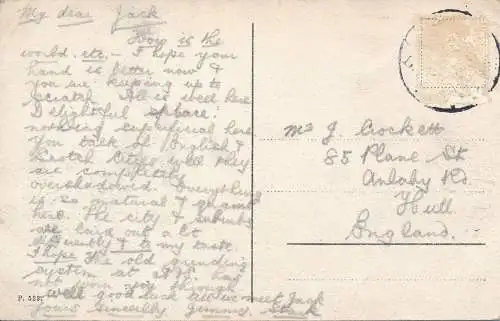 My dear Jack
How is the
world. etc. – I hope your
hand is better now &
you are keeping up to
scratch. All is well here
Delightful
nothing superficial here
You talk of English &
Scotch Cities well they
are completely
overshadowed. Everything
is so natural & quaint
here. The city & suburbs
are laid out a lot
differently & to my taste.
I hope the old grinding
system at has
not worn you through
Well good luck till we meet Jack
Yours Sincerely Jimmy.
P. 533
Mr J. Crockett
85 Plane St
Anlaby Rd.
Hull
England.